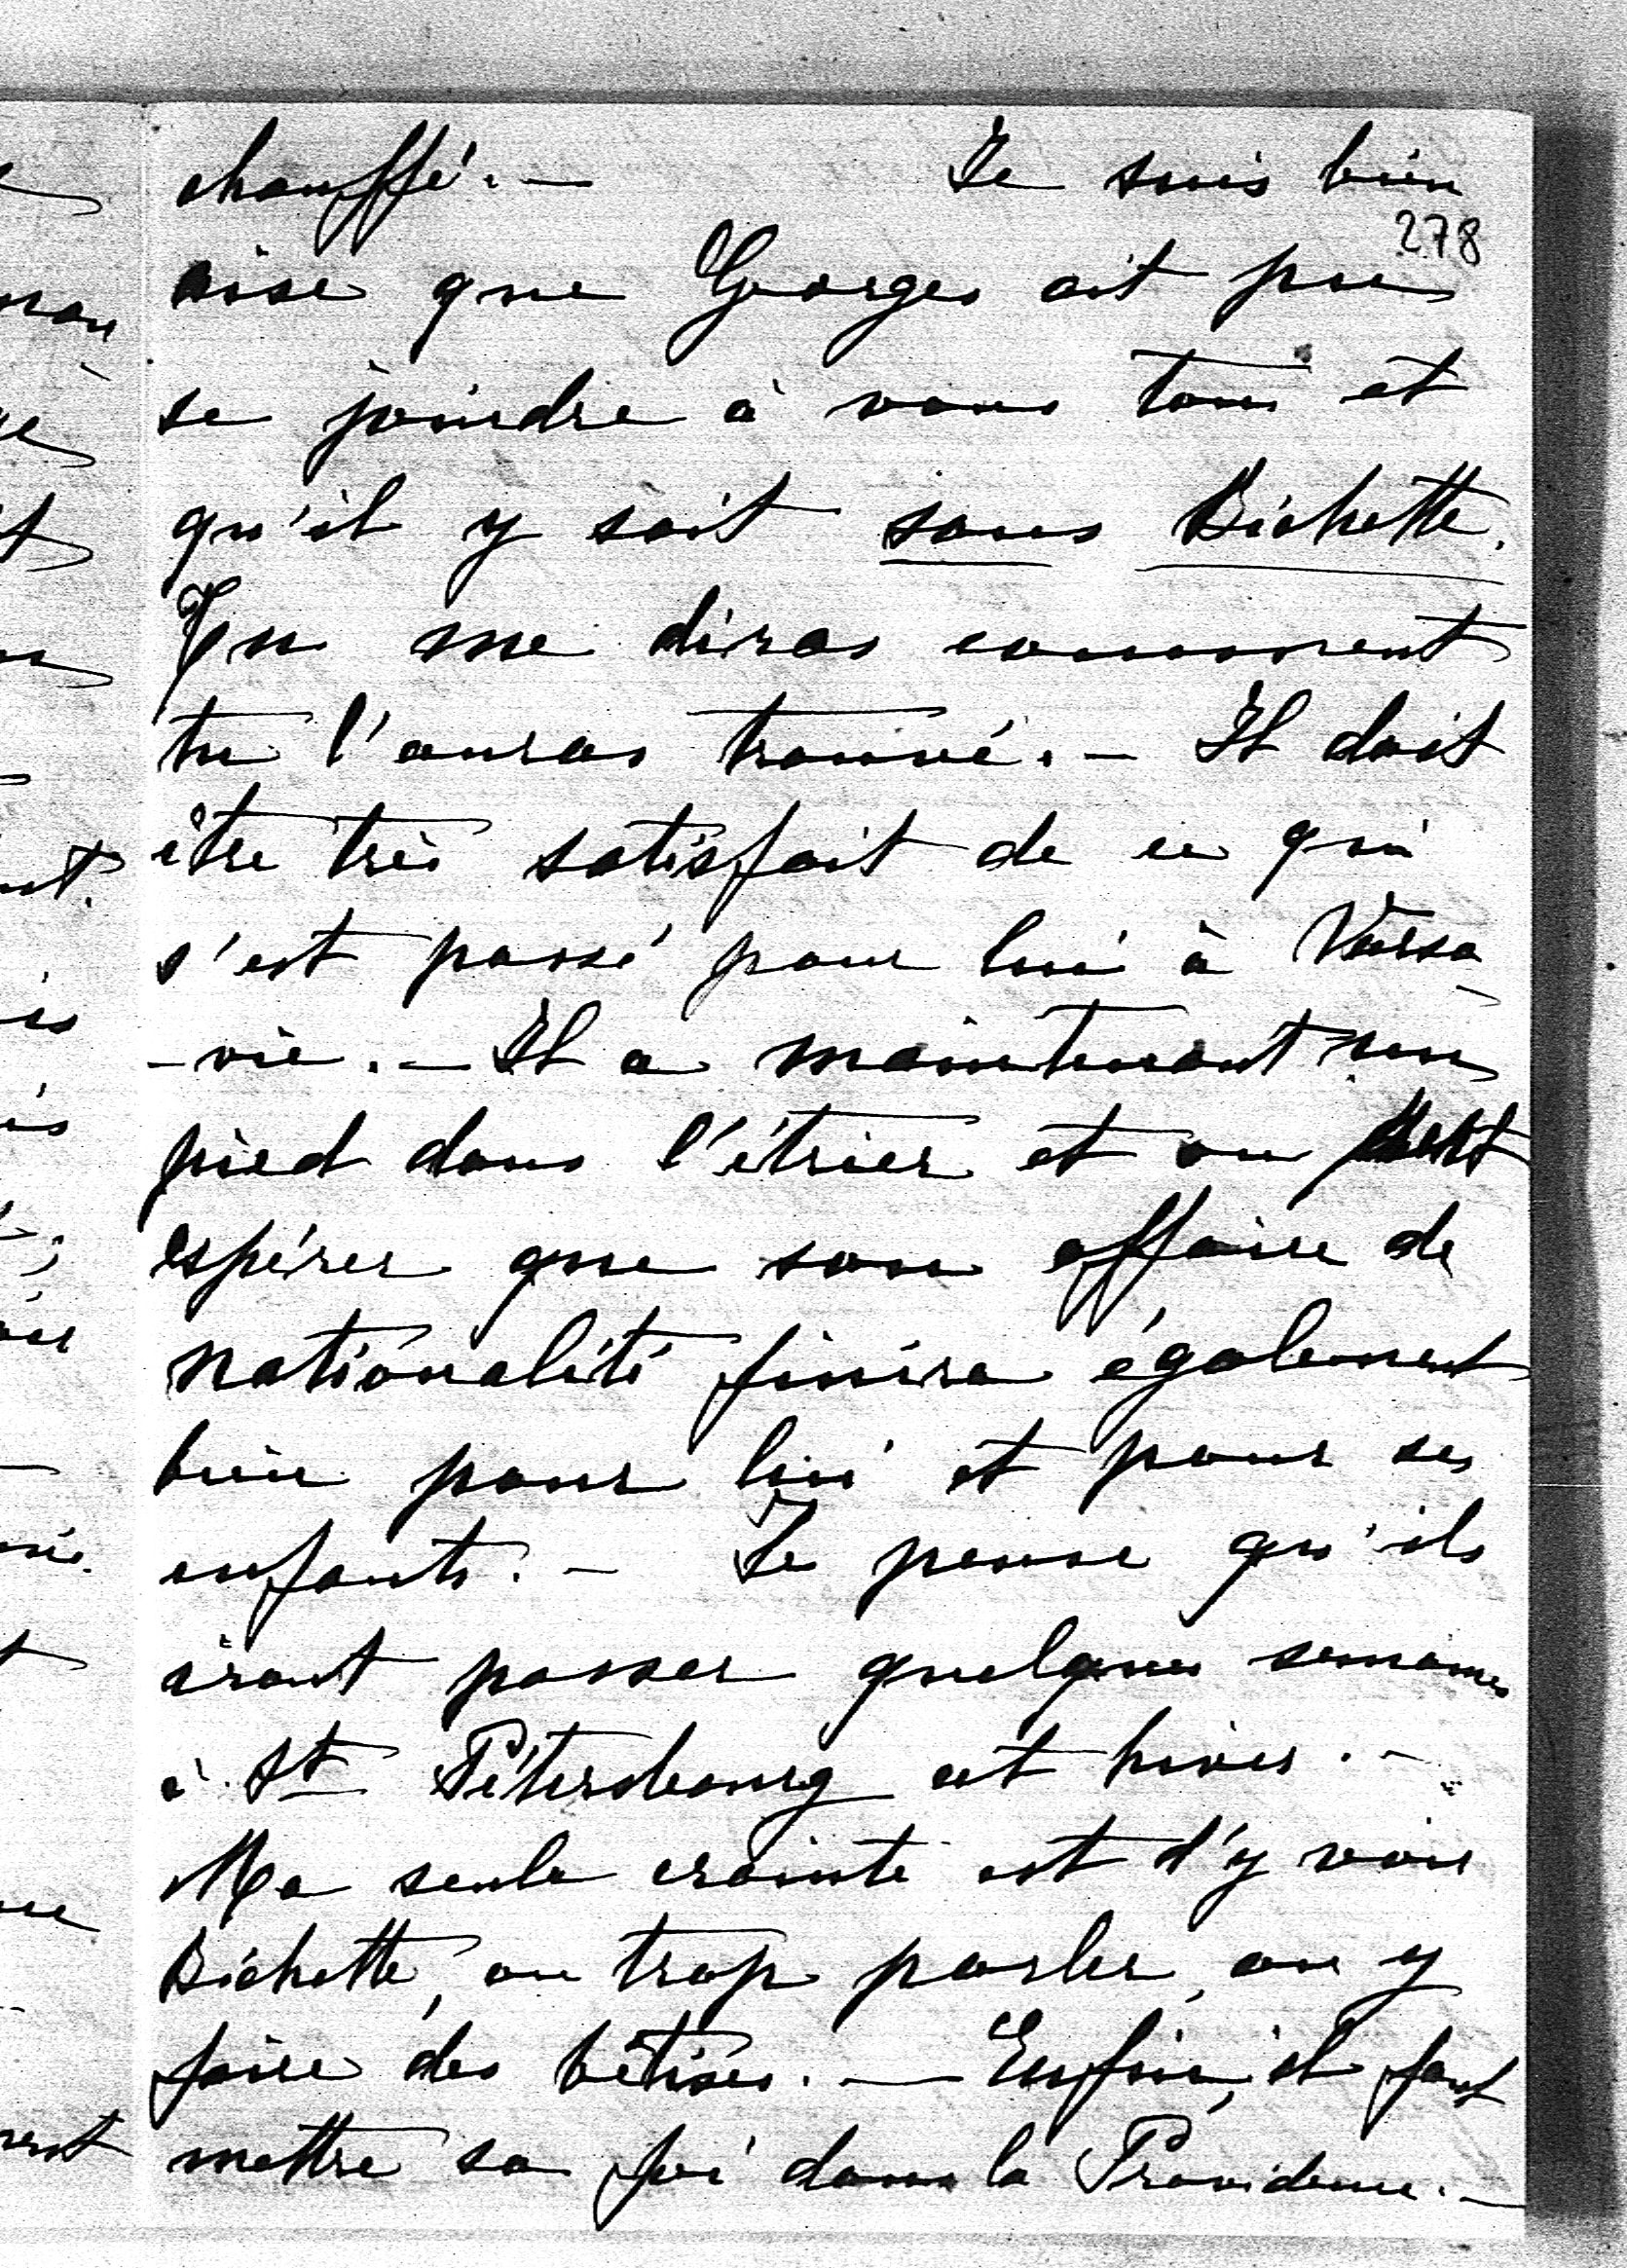 chauffé. — Je suis bien
278
aise que Georges ait pu
se joindre à vous tous et
qu'il y soit sans Bichette.
Tu me diras comment
tu l'auras trouvé. — Il doit
être très satisfait de ce qui
s'est passé pour lui à Varso
-vie. — Il a maintenant un
pied dans l'étrier et on peut
espérer que son affaire de
nationalité finira également
bien pour lui et pour ses
enfants. — Je pense qu'ils
iront passer quelques semaines
à St Pétersbourg cet hiver. —
Ma seule crainte est d'y voir
Bichette, ou trop parler, ou y
faire des bêtises. — Enfin, il faut
mettre sa foi dans la Providence. —